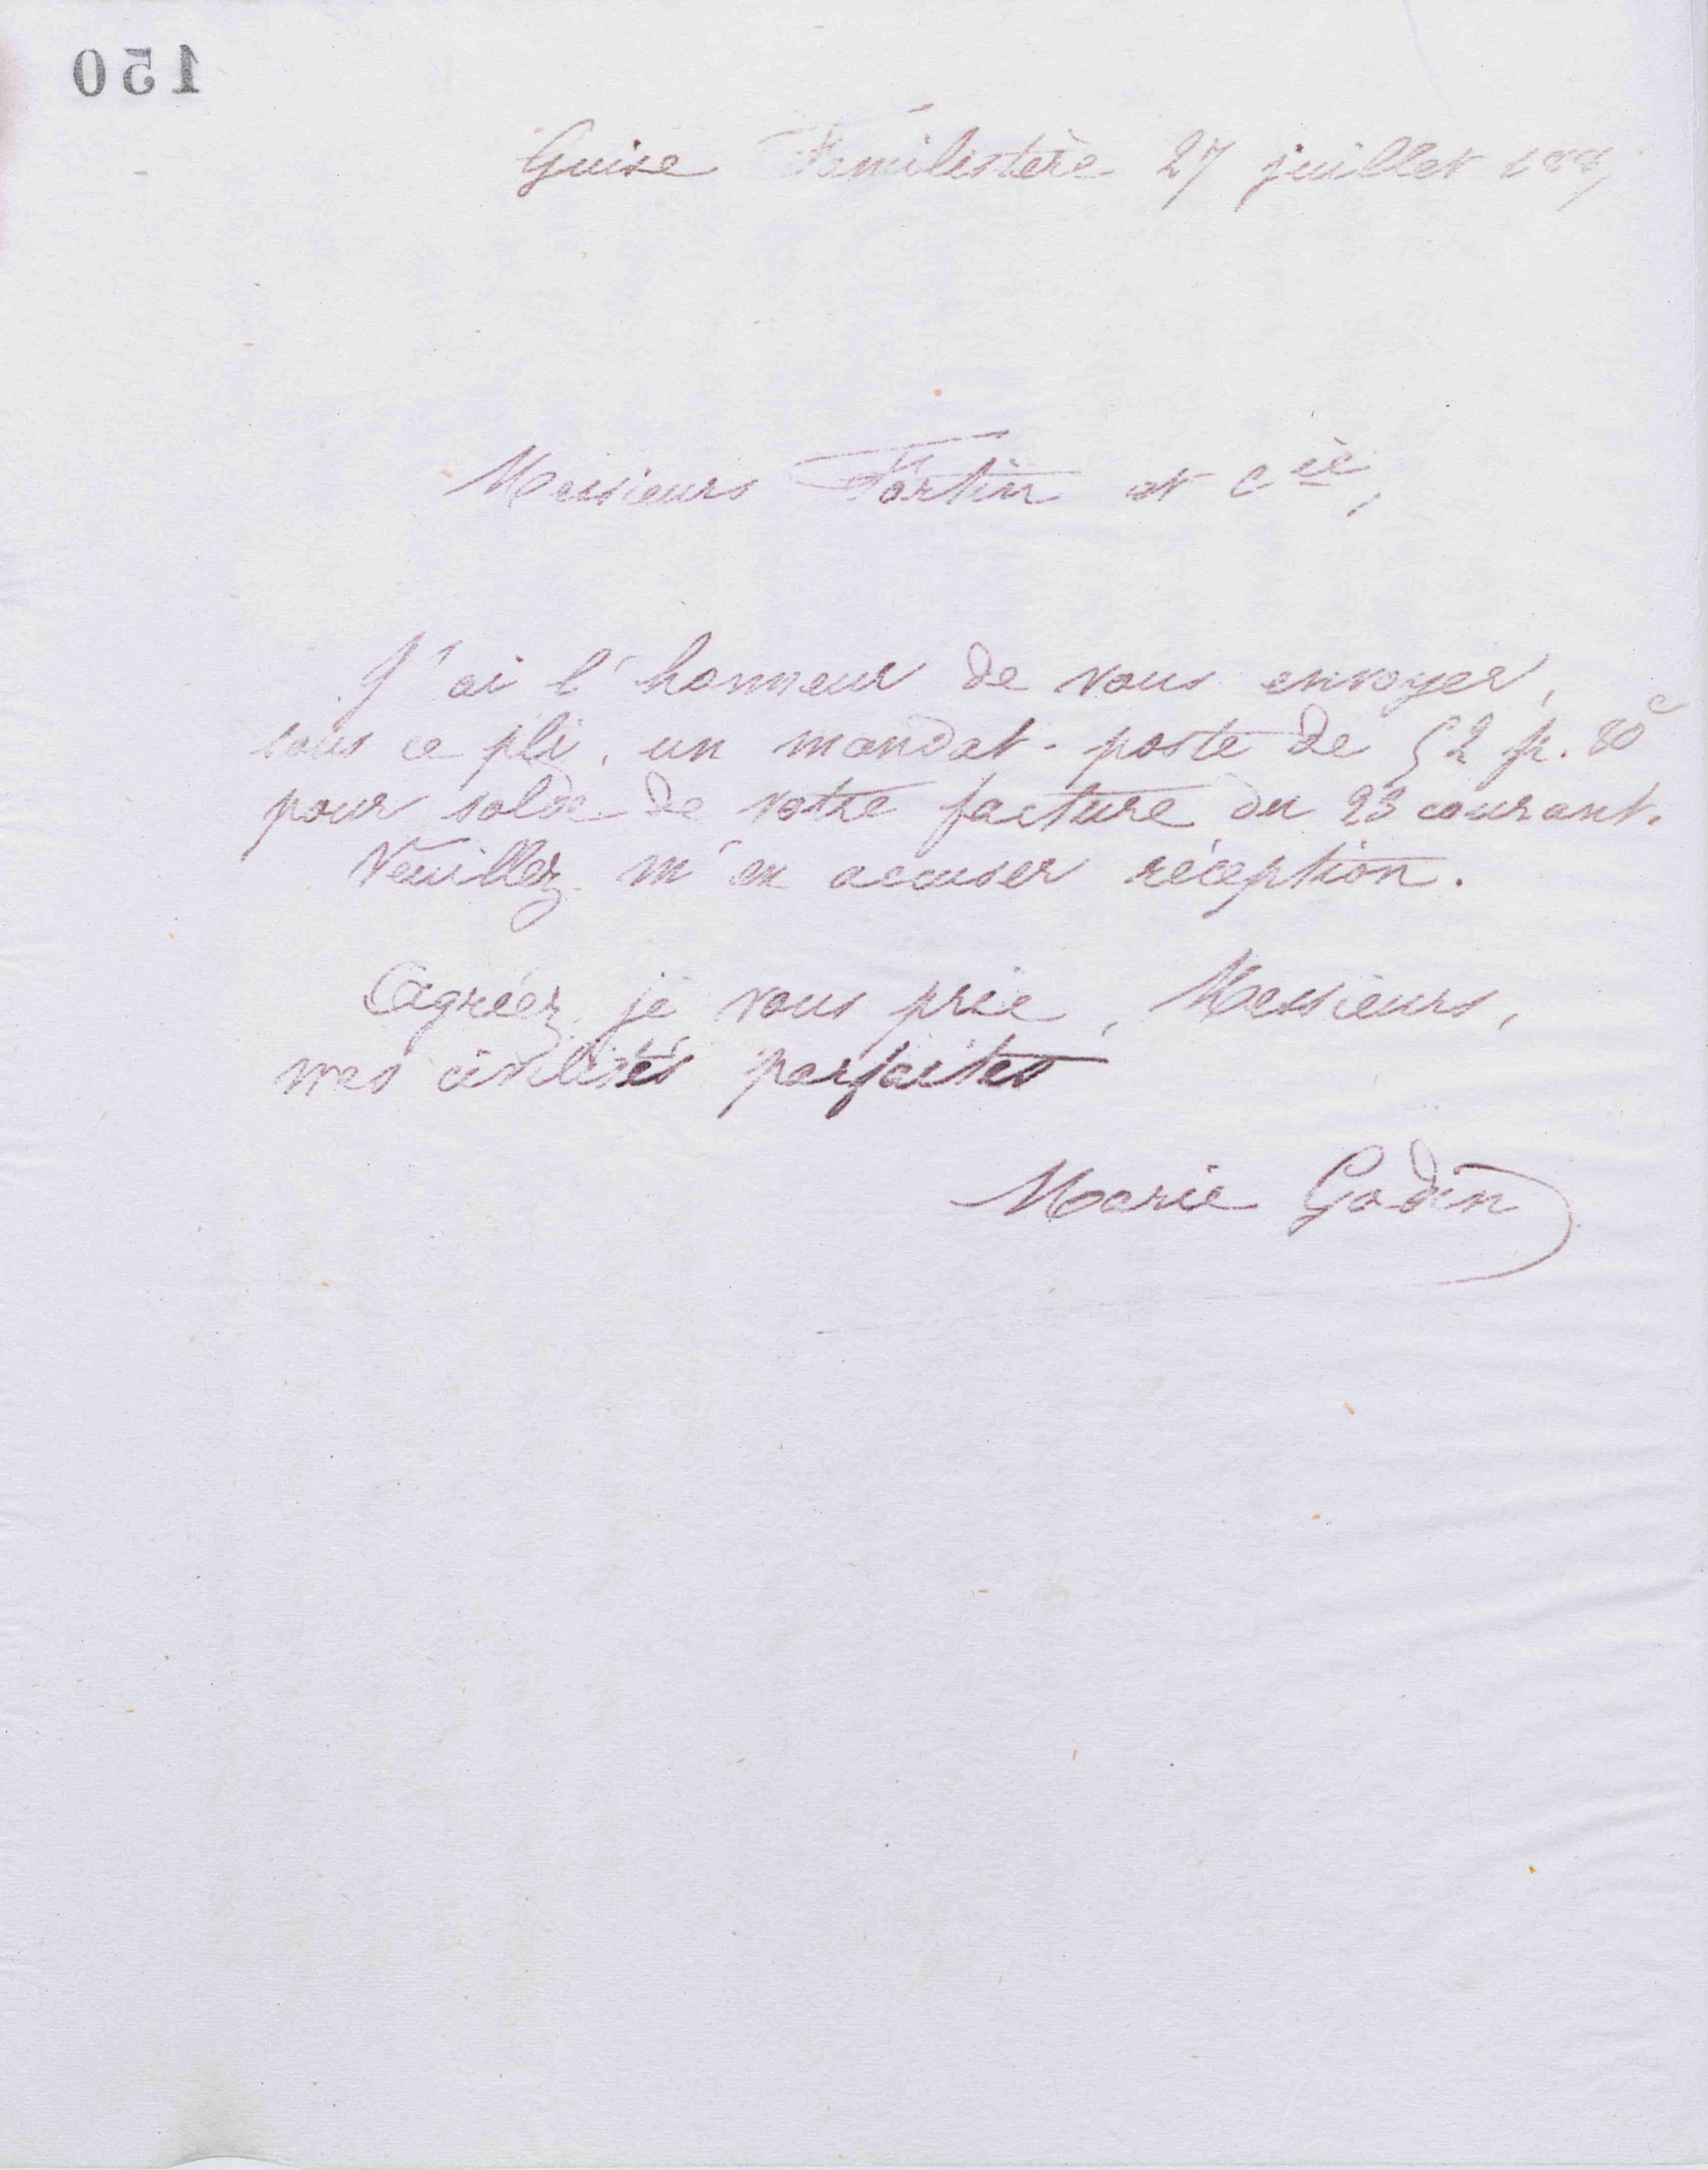 150
Guise Familistère 27 juillet
Messieurs Fortin et Cie,
J'ai l'honneur de vous envoyer,
sous ce pli, un mandat-poste de 52 fr. 80c
pour solde de votre facture du 23 courant.
Veuillez m'en accuser réception.
Agréez, je vous prie, Messieurs,
mes civilités parfaites
Marie Godin